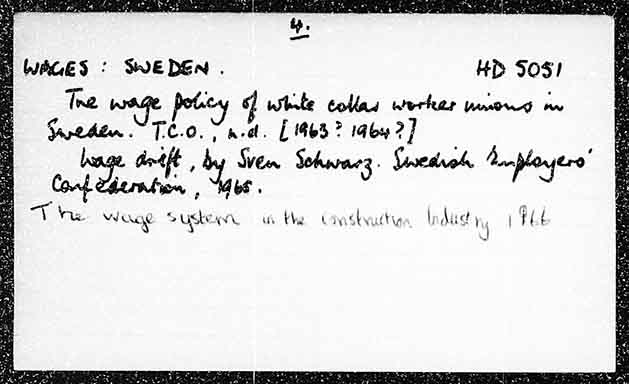 4.
WAGES : SWEDEN. HD 5051
The wage policy of white collar worker unions in
Sweden. T.C.O., n.d. [1963? 1964?]
Wage drift, by Sven Schwarz. Swedish Employers'
Confederation, 1965.
The wage system in the construction Industry 1966